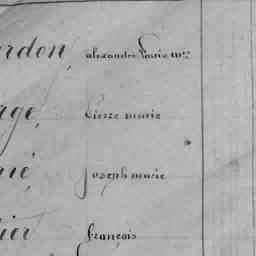 ordon, alexandre Louis m.
rge, Pierre marie
né, joseph marie
ier françois